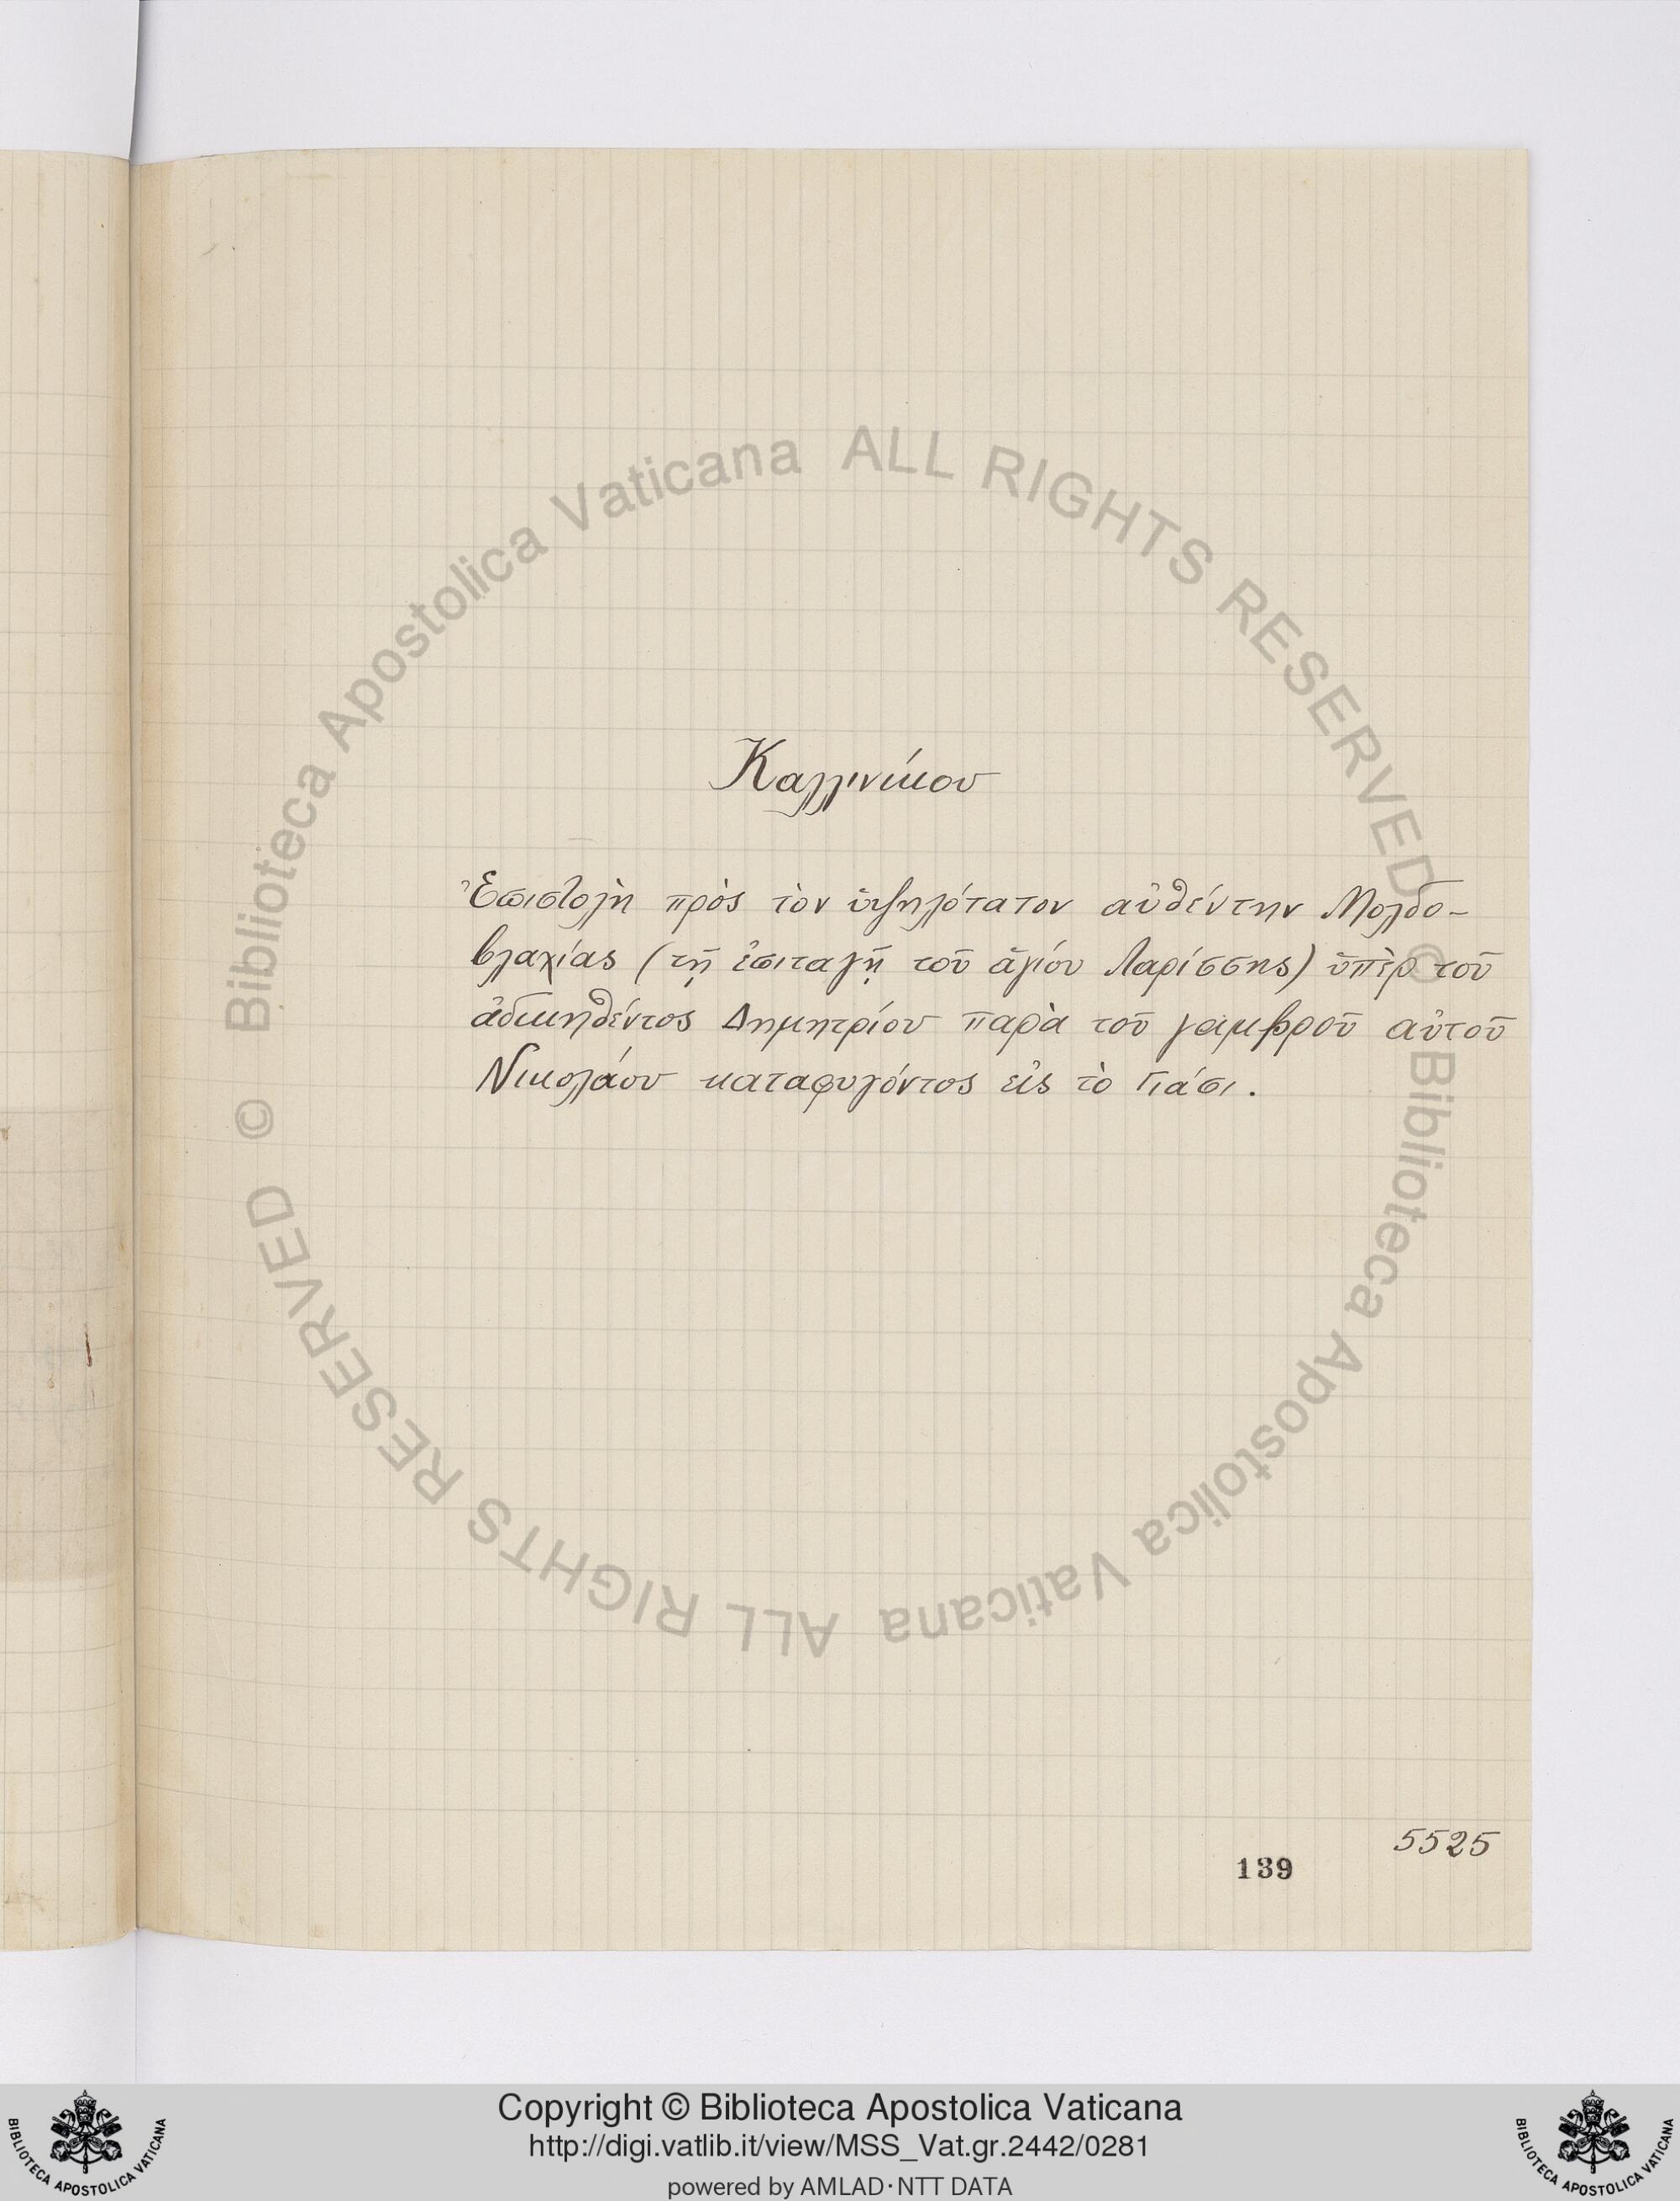 Καλλινίκου
Ἐπιστολὴ πρὸς τὸν ὑψηλότατον αὐθέντην Μολδο-
βλαχίας (τῇ ἐπιταγῇ τοῦ ἁγίου Λαρίσσης) ὑπὲρ τοῦ
ἀδικηθέντος Δημητρίου παρὰ τοῦ γαμβροῦ αὐτοῦ
Νικολάου καταφυγόντος εἰς τὸ Γιάσι.
5525
139
© Biblioteca Apostolica Vaticana ALL RIGHTS RESERVED
© Biblioteca Apostolica Vaticana ALL RIGHTS RESERVED
BIBLIOTECA APOSTOLICA VATICANA
Copyright © Biblioteca Apostolica Vaticana
http://digi.vatlib.it/view/MSS_Vat.gr.2442/0281
powered by AMLAD·NTT DATA
BIBLIOTECA APOSTOLICA VATICANA